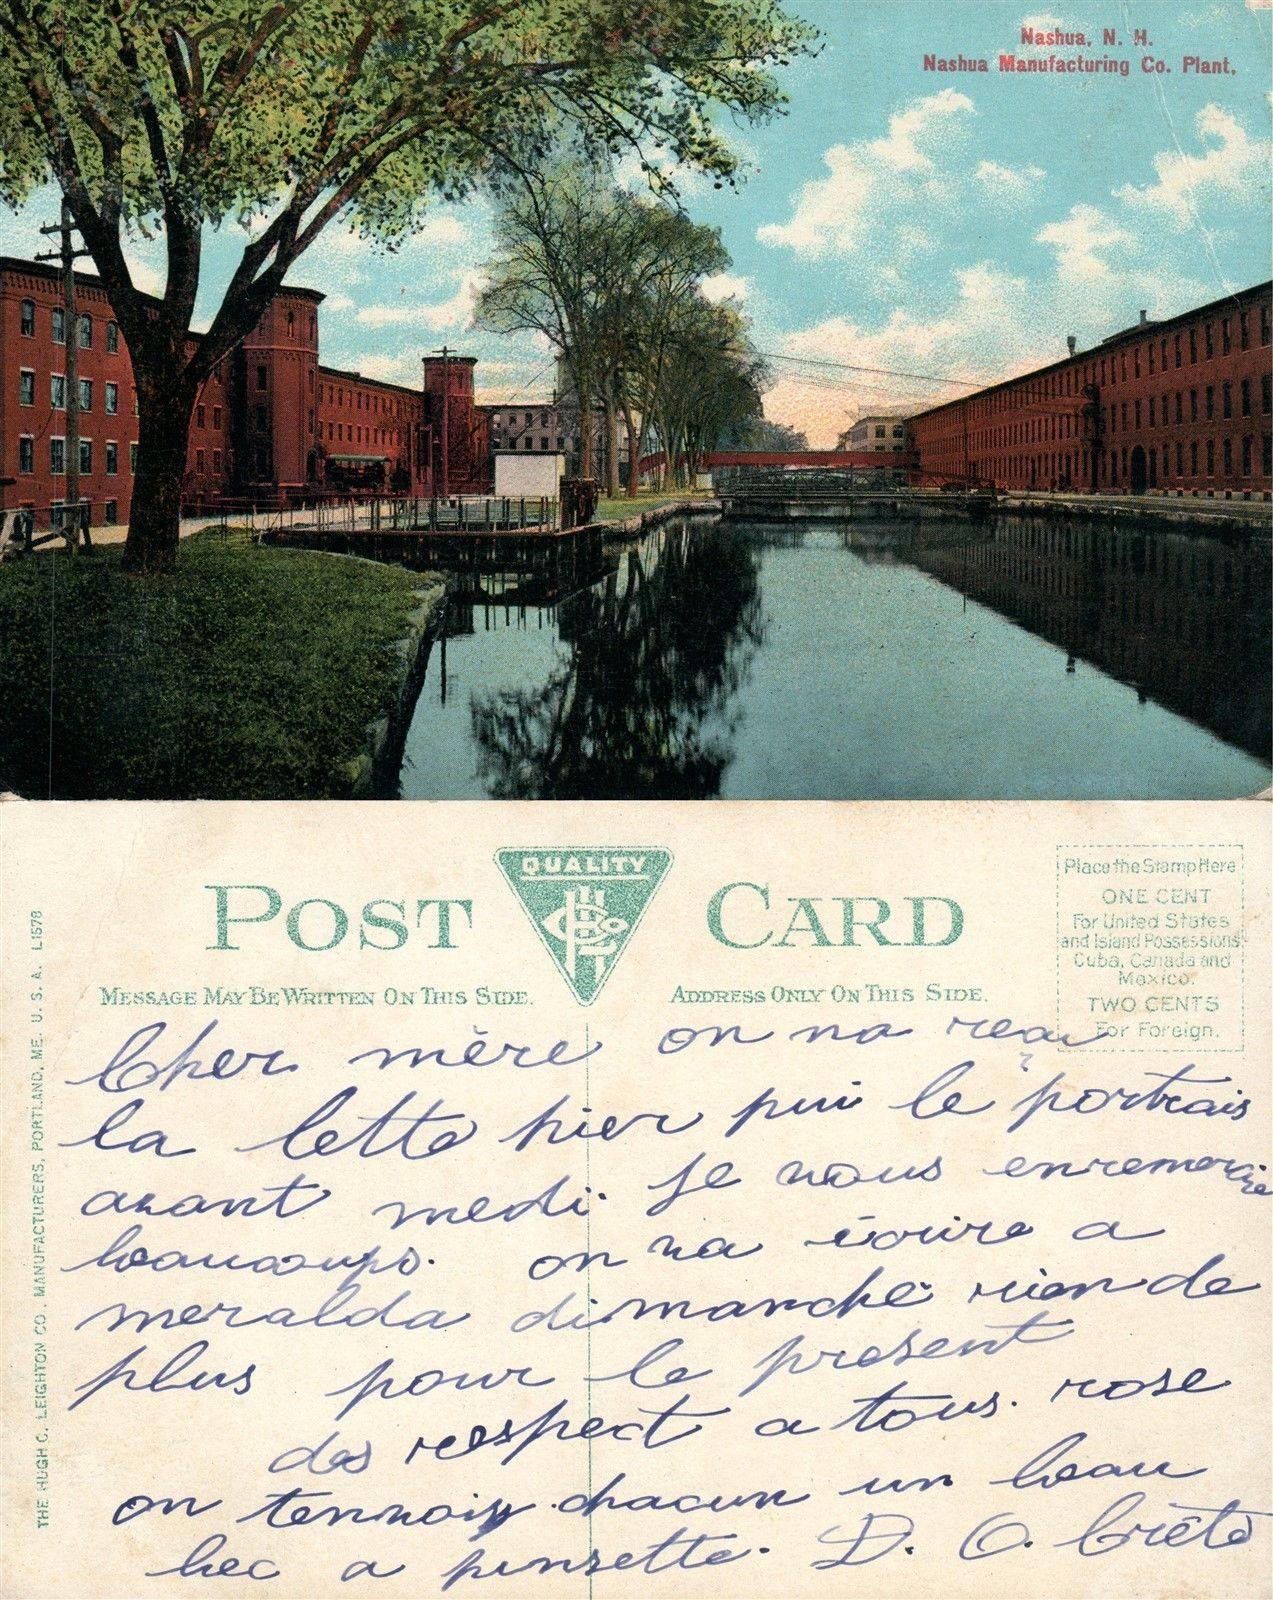 Nashua, N. H.
Nashua Manufacturing Co. Plant.
POST CARD
QUALITY
Place the Stamp Here
ONE CENT
For United States
and Island Possessions
Cuba, Canada and
Mexico.
TWO CENTS
For Foreign.
MESSAGE MAY BE WRITTEN ON THIS SIDE.
ADDRESS ONLY ON THIS SIDE.
THE HUGH C. LEIGHTON CO. MANUFACTURERS, PORTLAND, ME. U. S. A. L1578
Cher mère on na
la lette hier pui le portrais
avant medi je vous enremercie
beaucoups. on va écrire a
meralda dimanche rien de
plus pour le present
des respect a tous. rose
on tennoiy chacun un beau
bec a pinsette. D. O. Crête